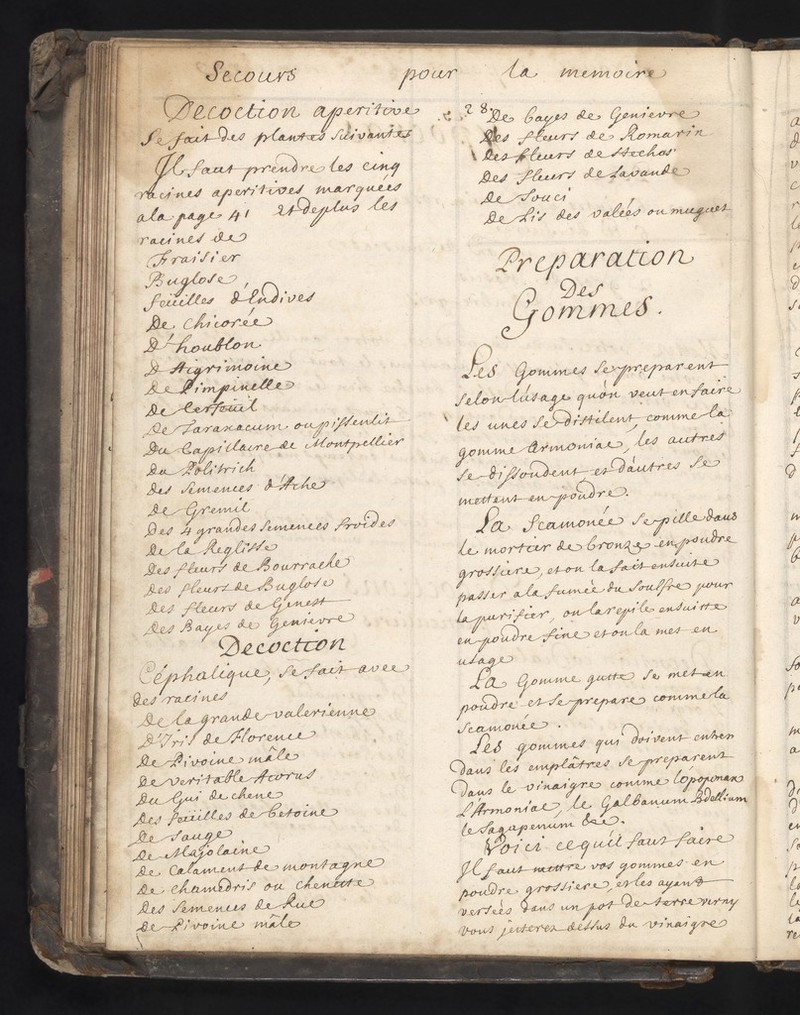 Secours pour la memoire
Decoction aperitive
Se fait des plantes suivantes
Il faut prendre les cinq
racines aperitives marquées
a la page 41 et deplus les
racines de
Fraisier
Buglose
feüilles d'Endives
De Chicorée
D'houblon
D'Aigrimoine
de Pimpinelle
de Cerfeüil
de Taraxacum ou pissenlit
Du Capillaire de Montpellier
du Politrich
des semences d'Ache
de Gremil
Des 4 grandes semences froides
De la Reglisse
Des fleurs de Bourrache
des fleurs de Buglose
des fleurs de Genest
des Bayes de Genievre
Decoction
Céphalique, se fait avec
des racines
De la grande valerienne
D'Iris de Florence
De Pivoine mâle
De veritable Acorus
Du Gui de chene
des feüilles de betoine
de Sauge
de Majolaine
de Calament de montagne
de chamedris ou chenette
Des semences de Rue
de Pivoine mâle
28
De bayes de Genievre
Des fleurs de Romarin
Des fleurs de Stechas
Des fleurs de Lavande
de Souci
de Lis des valées ou muguet
Preparation
Des
Gommes.
Les Gommes se preparent
selon l'úsage qu'on veut en faire
les unes se distilent, comme la
gomme Armoniac, les autres
se dissoudent et d'autres se
mettent en poudre.
La Scamonée se pille dans
le mortier de bronze en poudre
grossiere, et on la fait ensuite
passer a la fumée du soulfre pour
la purifier, on la repile ensuitte
en poudre fine et on la met en
usage
La Gomme gutte se met en
poudre et se prepare comme la
scamonée.
Les gommes qui doivent entrer
dans les emplâtres se preparent
dans le vinaigre comme l'opoponax
L'Armoniac, le Galbanum Bdellium
le Sagapenum &c.
Voici ce qu'il faut faire
Il faut mettre vos gommes en
poudre grossiere, et les ayant
versées dans un pot de terre verny
vous jetterez dessus du vinaigre